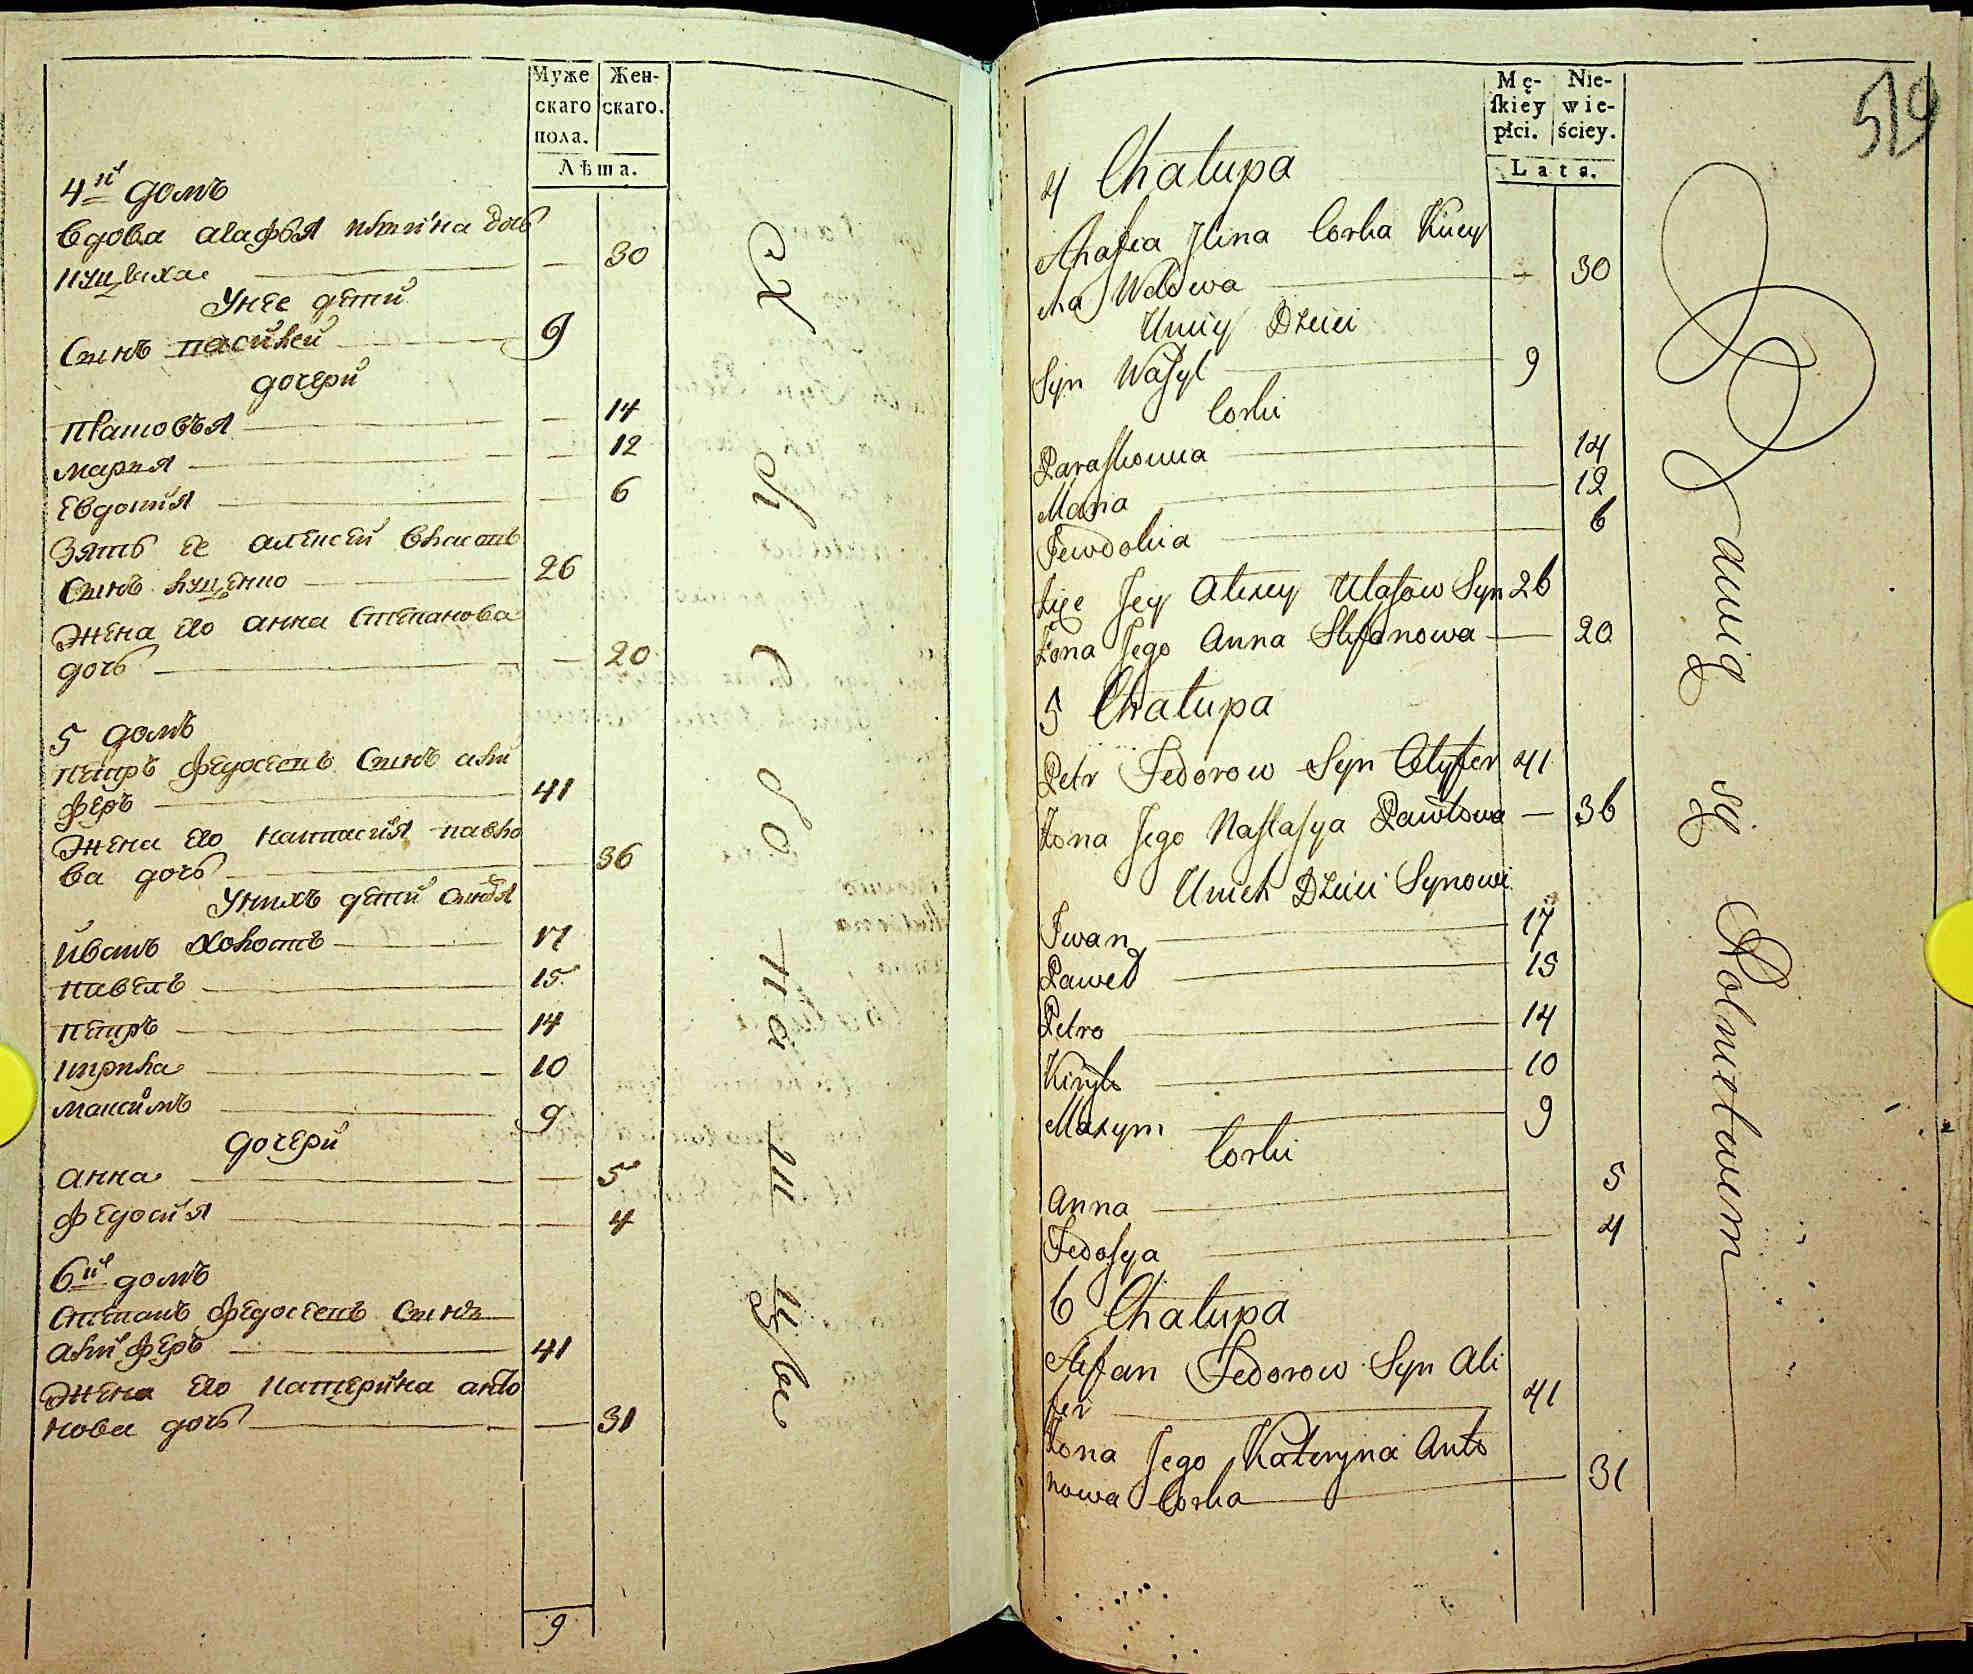 Муже
скаго
пола.
Жен-
скаго.
Лѣта.
4й домъ
вдова агафья ильина доч
куцвиха — 30
У нее дети
Синъ василей — 9
дочери
прасковья — 14
мария — 12
Евдокия — 6
Зять ее алексей власовъ
Синъ куценко — 26
Жена его анна Степанова
дочь — 20
5 домъ
петръ федосеевъ Синъ али
феръ — 41
Жена его настасия павло
ва дочь — 36
У нихъ дети синвя
иванъ холостъ — 17
павелъ — 15
петръ — 14
кирила — 10
максимъ — 9
дочери
анна — 5
федосия — 4
6й домъ
степанъ федосеевъ Синъ
алиферъ — 41
Жена его катерина анто
нова дочь — 31
9
Живутъ
519
Mę-
ſkiey
płci.
Nie-
wie-
ściey.
Lata.
4 Chałupa
Ahafia Jlina Corka Kucy
cha Wdowa — 30
U niey Dzieci
Syn Waſyl — 9
Corki
Paraſkowia — 14
Maria — 12
Jewdokia — 6
Zięc Jey Alexey Ulaſow Syn 26
Żona Jego Anna Stefanowa — 20
5 Chałupa
Petr Fedorow Syn Olyfer 41
Żona Jego Naſtaſya Pawłowa — 36
U nich Dzieci Synowi
Iwan — 17
Paweł — 15
Petro — 14
Kiryło — 10
Maxym — 9
Corki
Anna — 5
Fedoſya — 4
6 Chałupa
Stefan Fedorow Syn Ali
fer — 41
Żona Jego Kateryna Anto
nowa Corka — 31
Bawią się Rolnictwem